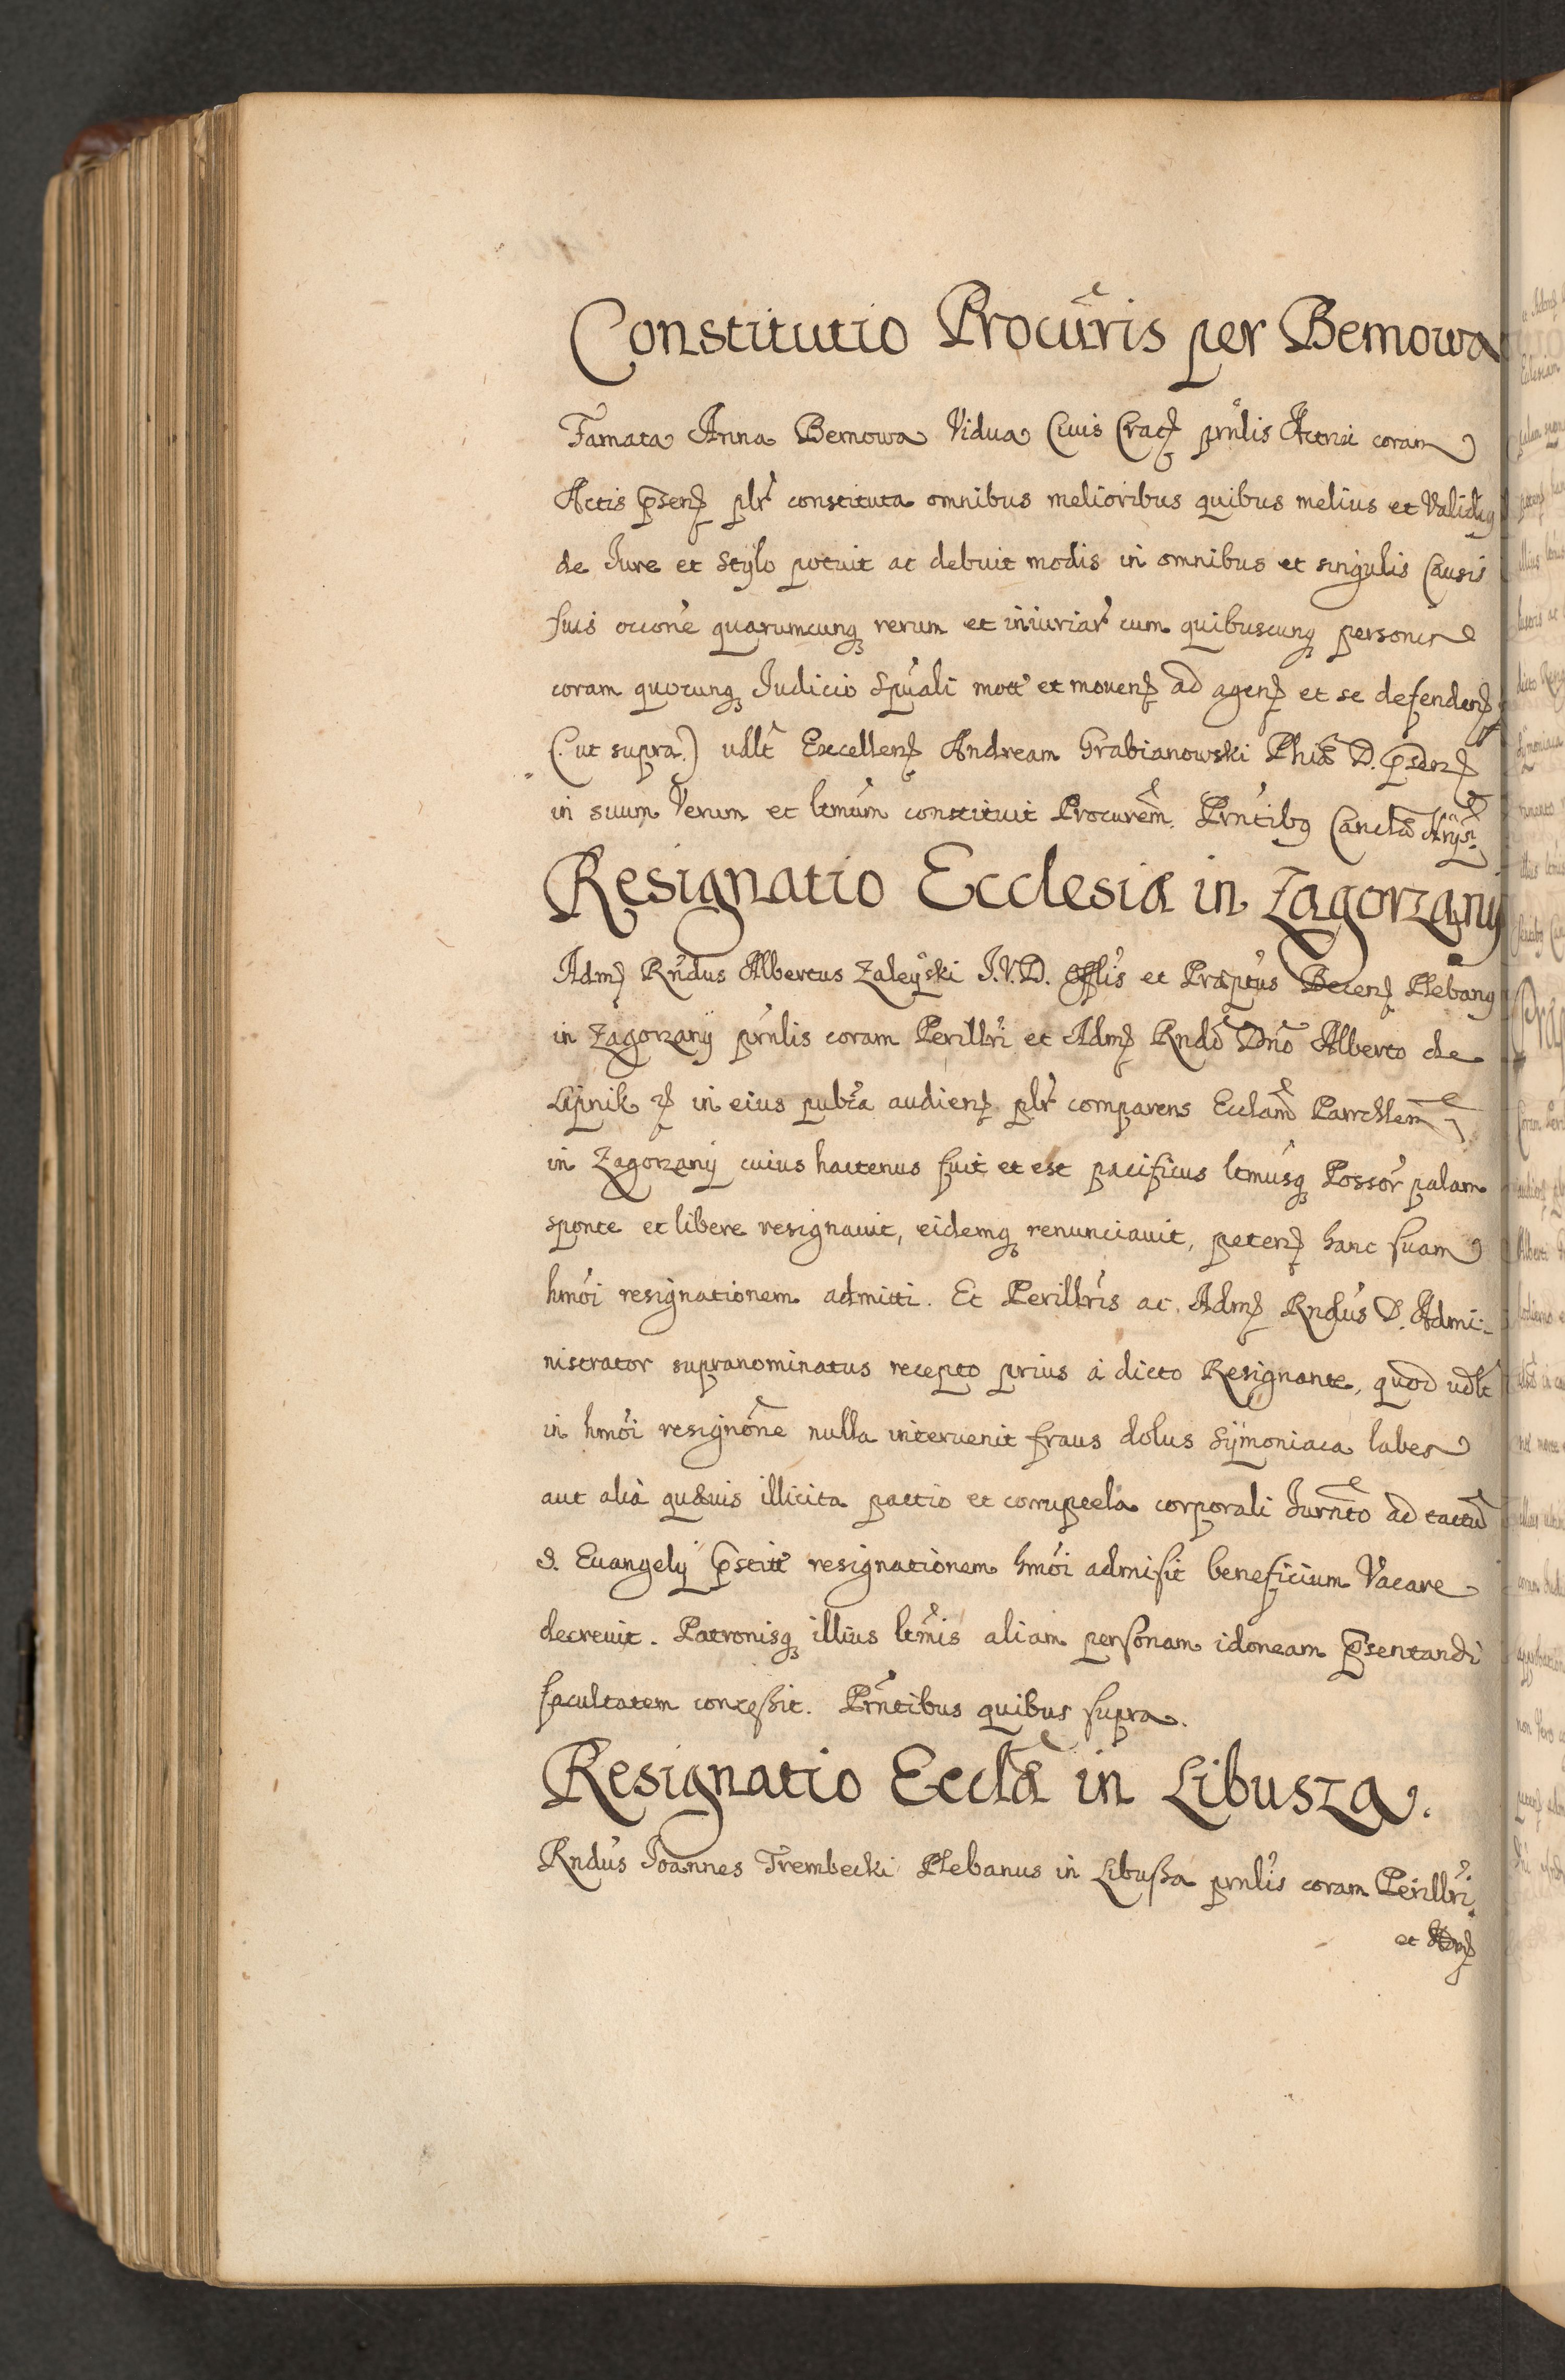 Constitutio Procũris per Bemowa
Famata Anna Bemowa Vidua Civis Crac. prnlis Actrix coram
Actis psen. plr constituta omnibus melioribus quibus melius et Validius
de Jure et Stylo potuit ac debuit modis in omnibus et singulis Causis
suis occone quarumcunq rerum et iniuriar cum quibuscunq personis
coram quocunq Judicio Spuali mot et moven. ad agen. et se defenden.
(ut supra) vdlt Excellen. Andream Grabianowski Phiæ D. psen.
in suum Verum et ltmum constituit Procurem. Prntibq
Resignatio Ecclesiæ in Zagorzany
Adm. Rndus Albertus Zaleyski J.V.D. Offlis et Præptus Becen. Plebanq
in Zagorzany prnlis coram Perillri et Adm. Rndo Dno Alberto de
Lipnik in eius publca audien. plr comparens Ecclam Parrchlem
in Zagorzany cuius hactenus fuit et est pacificus ltmusq Possor palam
sponte et libere resignavit, eidemq renunciavit, peten. hanc suam
hmoi resignationem admitti. Et Perillris ac Adm. Rndus D. Admi-
nistrator supranominatus recepto prius a dicto Resignante, quod vdlt
in hmoi resignone nulla intervenit fraus dolus Symoniaca labes
aut alia quævis illicita pactio et corruptela corporali Jurnto ad tactũ
S. Evangelij pstit resignationem hmoi admisit beneficium Vacare
decrevit. Patronisq illius ltmis aliam personam idoneam psentandi
facultatem concessit. Prntibus quibus supra.
Resignatio Ecclæ in Libusza.
Rndus Joannes Trembecki Plebanus in Libussa prnlis coram Perillri
et Adm.